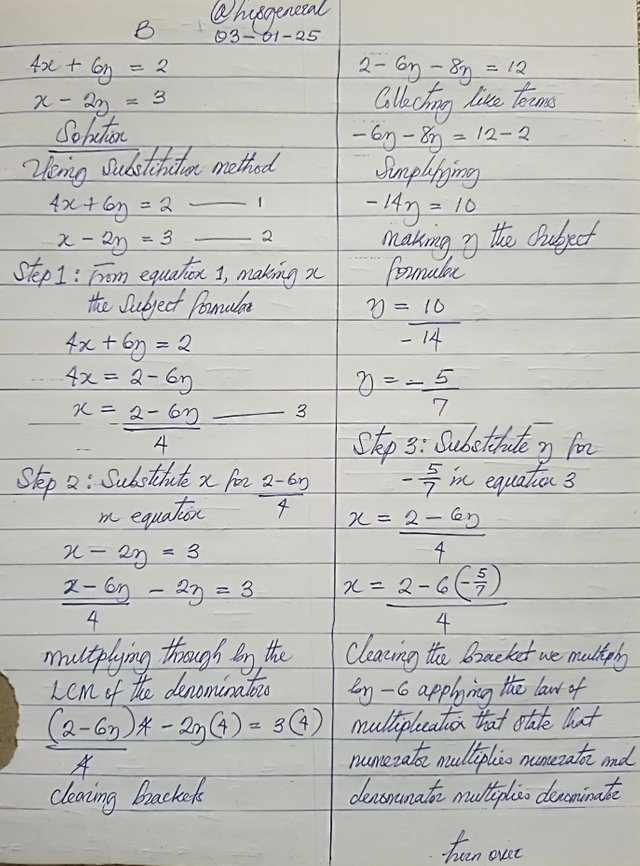 @hisgeneral
B 03-01-25
4x + 6y = 2
x - 2y = 3
Solution
Using Substitution method
4x + 6y = 2 — 1
x - 2y = 3 — 2
Step 1: From equation 1, making x
the Subject formular
4x + 6y = 2
4x = 2 - 6y
x = 2 - 6y — 3
4
Step 2: Substitute x for 2-6y
4
in equation
x - 2y = 3
2 - 6y - 2y = 3
4
multplying through by the
LCM of the denominators
(2-6y)4 - 2y(4) = 3(4)
4
Clearing brackets
2 - 6y - 8y = 12
Collecting like terms
-6y - 8y = 12 - 2
Simplifying
-14y = 10
making y the Subject
formular
y = 10
-14
y = - 5
7
Step 3: Substitute y for
-5/7 in equation 3
x = 2 - 6y
4
x = 2 - 6(-5/7)
4
Clearing the bracket we multiply
by -6 applying the law of
multiplication that state that
numerator multiplies numerator and
denominator multiplies denominator
turn over